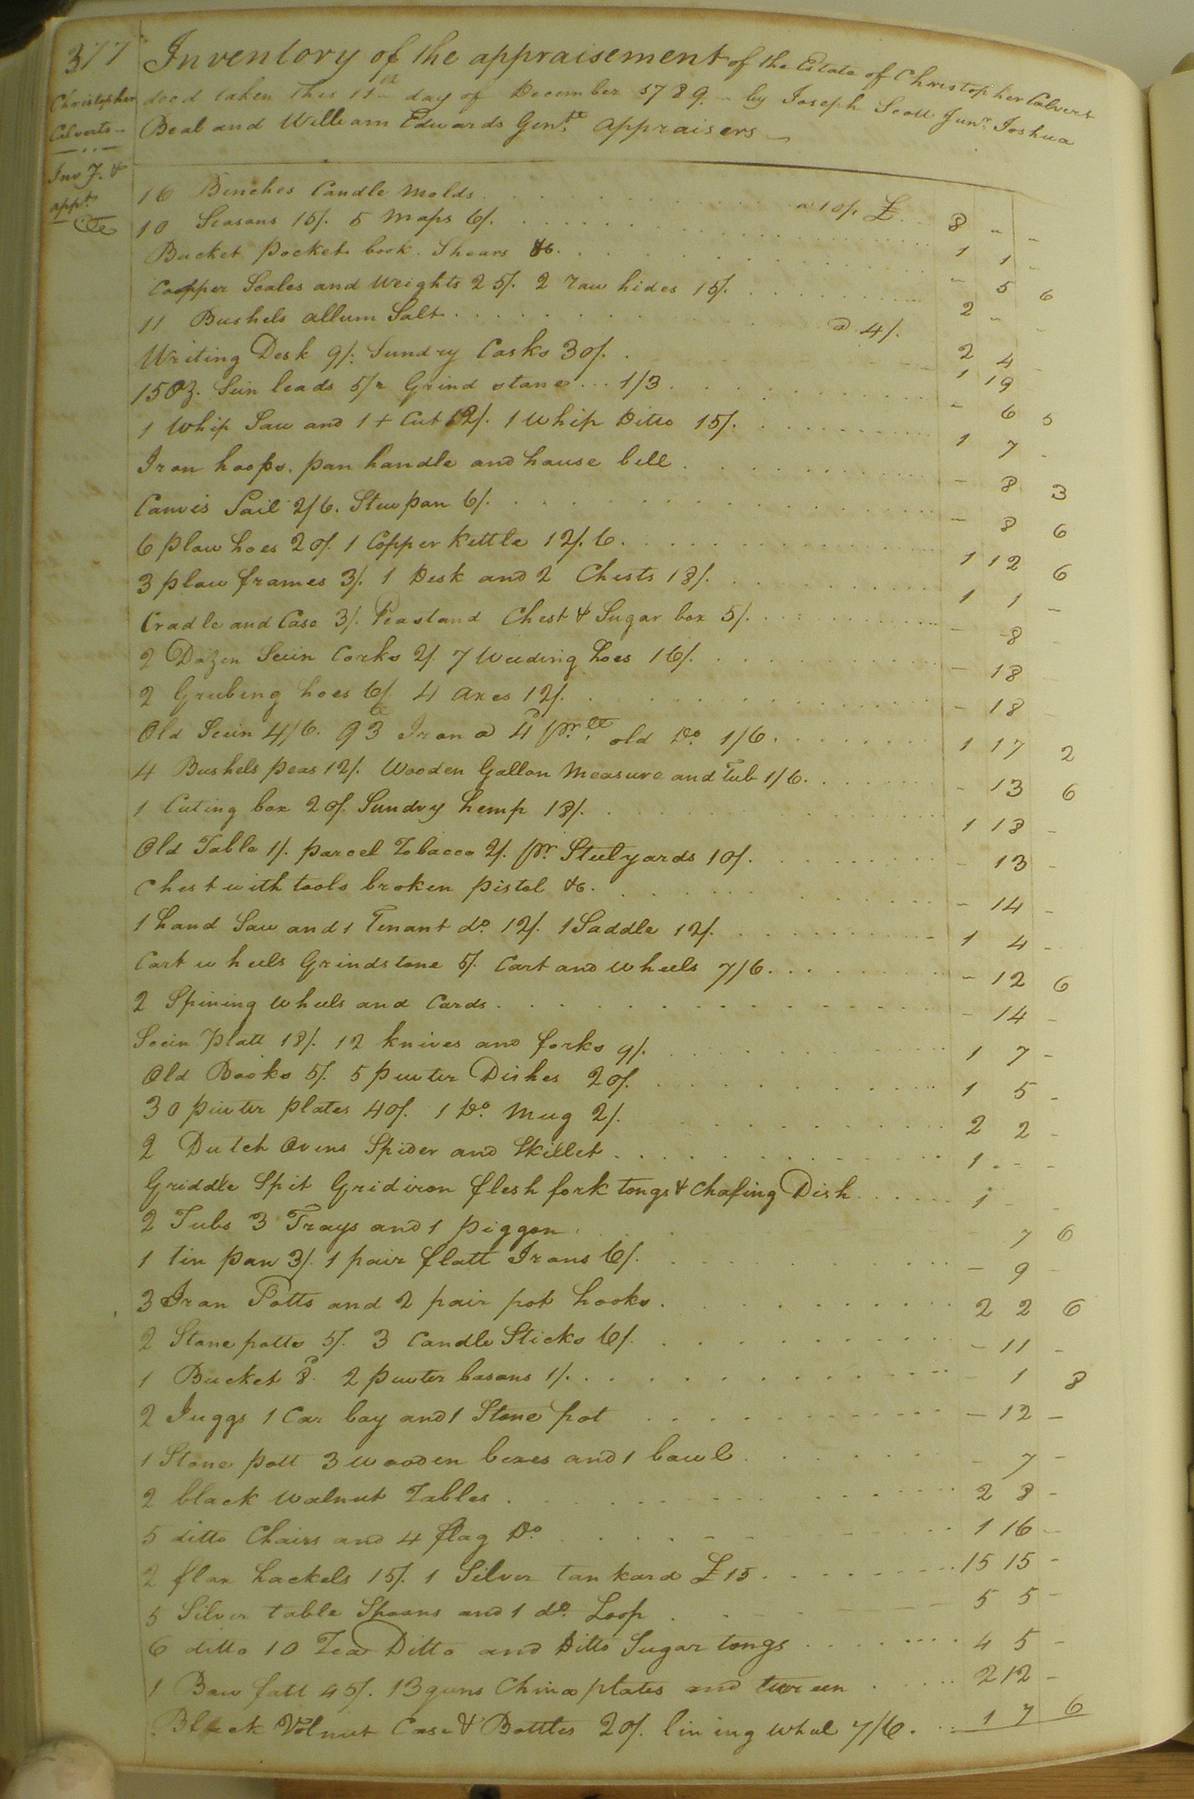 377 Inventory of the appraisement of the Estate of Christopher Calvert
Christopher decd taken this 11th day of December 1789 - by Joseph Scott Junr. Joshua
Calverts - Beal and William Edwards Gente. appraisers -
Inv J. &
appt.
16 Benches Candle Molds . . . a 10/. £ 8 - -
10 Seasons 15/. 5 Maps 6/. 1 1 -
Bucket Pocket book. Shears &c. - 5 6
Copper Scales and Weights 25/. 2 raw hides 15/. 2 - -
11 Bushels allum Salt . . . a 4/. 2 4 -
Writing Desk 9/. Sundry Casks 30/. 1 19
15 oz. Sein leads 5/2 Grind stone ... 1/3 - 6 5
1 Whip Saw and 1 + Cut 12/. 1 Whip Ditto 15/. 1 7 -
Iron hoops. pan handle and house bell - 8 3
Canvis Sail 2/6. Stewpan 6/. - 8 6
6 plow hoes 20/. 1 Copper kettle 12/.6. 1 12 6
3 plow frames 3/. 1 Desk and 2 Chests 18/. 1 1 -
Cradle and Case 3/. Chest & Sugar box 5/. - 8
2 Dozen Sein Corks 2/. 7 Weeding hoes 16/. - 18
2 Grubing hoes 6/. 4 axes 12/. - 18 -
Old Sein 4/6. 93 Iron a 4d pr. lb old Do. 1/6. 1 17 2
4 Bushels peas 12/. Wooden Gallon Measure and Tub 1/6. - 13 6
1 Cuting box 20/. Sundry hemp 18/. 1 18 -
Old Table 1/. parcel Tobacco 2/. pr. Steelyards 10/. - 13 -
Chest with tools broken pistol &c. - 14 -
1 hand Saw and 1 Tenant do. 12/. 1 Saddle 12/. 1 4 -
Cart wheels Grindstone 5/. Cart and wheels 7/6. - 12 6
2 Spining wheels and Cards . - 14 -
Sein Platt 18/. 12 knives and forks 9/. 1 7 -
Old Books 5/. 5 pewter Dishes 20/. 1 5 -
30 pewter plates 40/. 1 Do. Mug 2/. 2 2 -
2 Dutch Ovens Spider and Skillet 1 - -
Griddle Spit Gridiron flesh fork tongs & Chafing Dish 1 - -
2 Tubs 3 Trays and 1 piggon - 7 6
1 tin pan 3/. 1 pair flatt Irons 6/. - 9 -
3 Iron Potts and 2 pair pot hooks . 2 2 6
2 Stone potts 5/. 3 Candle Sticks 6/. - 11 -
1 Bucket 8d. 2 pewter basons 1/. - 1 8
2 Juggs 1 Car boy and 1 Stone pot - 12 -
1 Stone pott 3 wooden boxes and 1 bowl - 7 -
2 black walnut Tables . 2 8 -
5 ditto Chairs and 4 flag Do 1 16 -
2 flax hackels 15/. 1 Silver tankard £15 . 15 15 -
5 Silver table Spoons and 1 do. Loop 5 5 -
6 ditto 10 Tea Ditto and Ditto Sugar tongs 4 5 -
1 Bow fatt 45/. 13 China plates and tureen 2 12 -
Black Volnut Case & Bottles 20/. lining wheel 7/6. 1 7 6